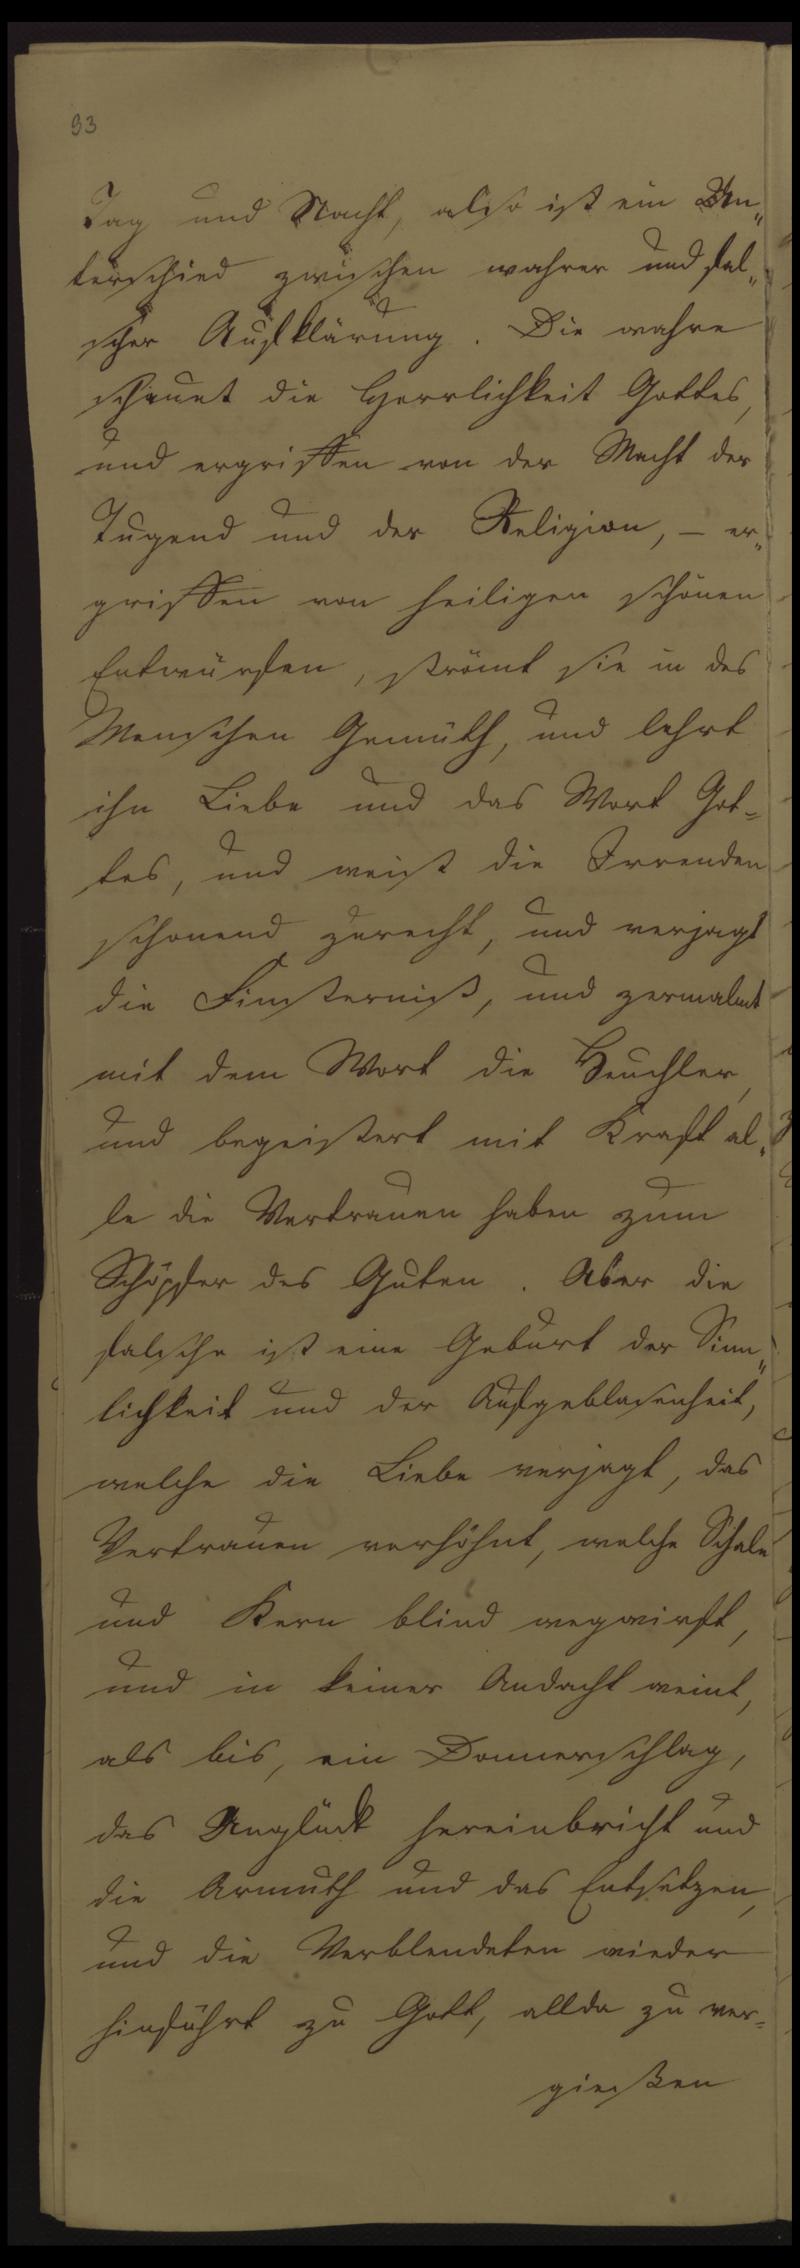 93
Tag und Nacht, also ist ein Un„
terschied zwischen wahrer und fal„
scher Aufklärung. Die wahre
schauet die Herrlichkeit Gottes,
und ergriffen von der Macht der
Tugend und der Religion, – er„
griffen von heiligen schönen
Entwürfen, strömt sie in des
Menschen Gemüth, und lehrt
ihn Liebe und das Wort Got=
tes, und weist die Irrenden
schonend zurecht, und verjagt
die Finsterniß, und zermalmt
mit dem Wort die Heuchler,
und begeistert mit Kraft al„
le die Vertrauen haben zum
Schöpfer des Guten. Aber die
falsche ist eine Geburt der Sinn„
lichkeit und der Aufgeblasenheit,
welche die Liebe verjagt, das
Vertrauen verhöhnt, welche Schale
und Kern blind wegwirft,
und in keiner Andacht weint,
als bis, ein Donnerschlag,
das Unglück hereinbricht und
die Armuth und das Entsetzen,
und die Verblendeten wieder
hinführt zu Gott, allda zu ver=
gießen